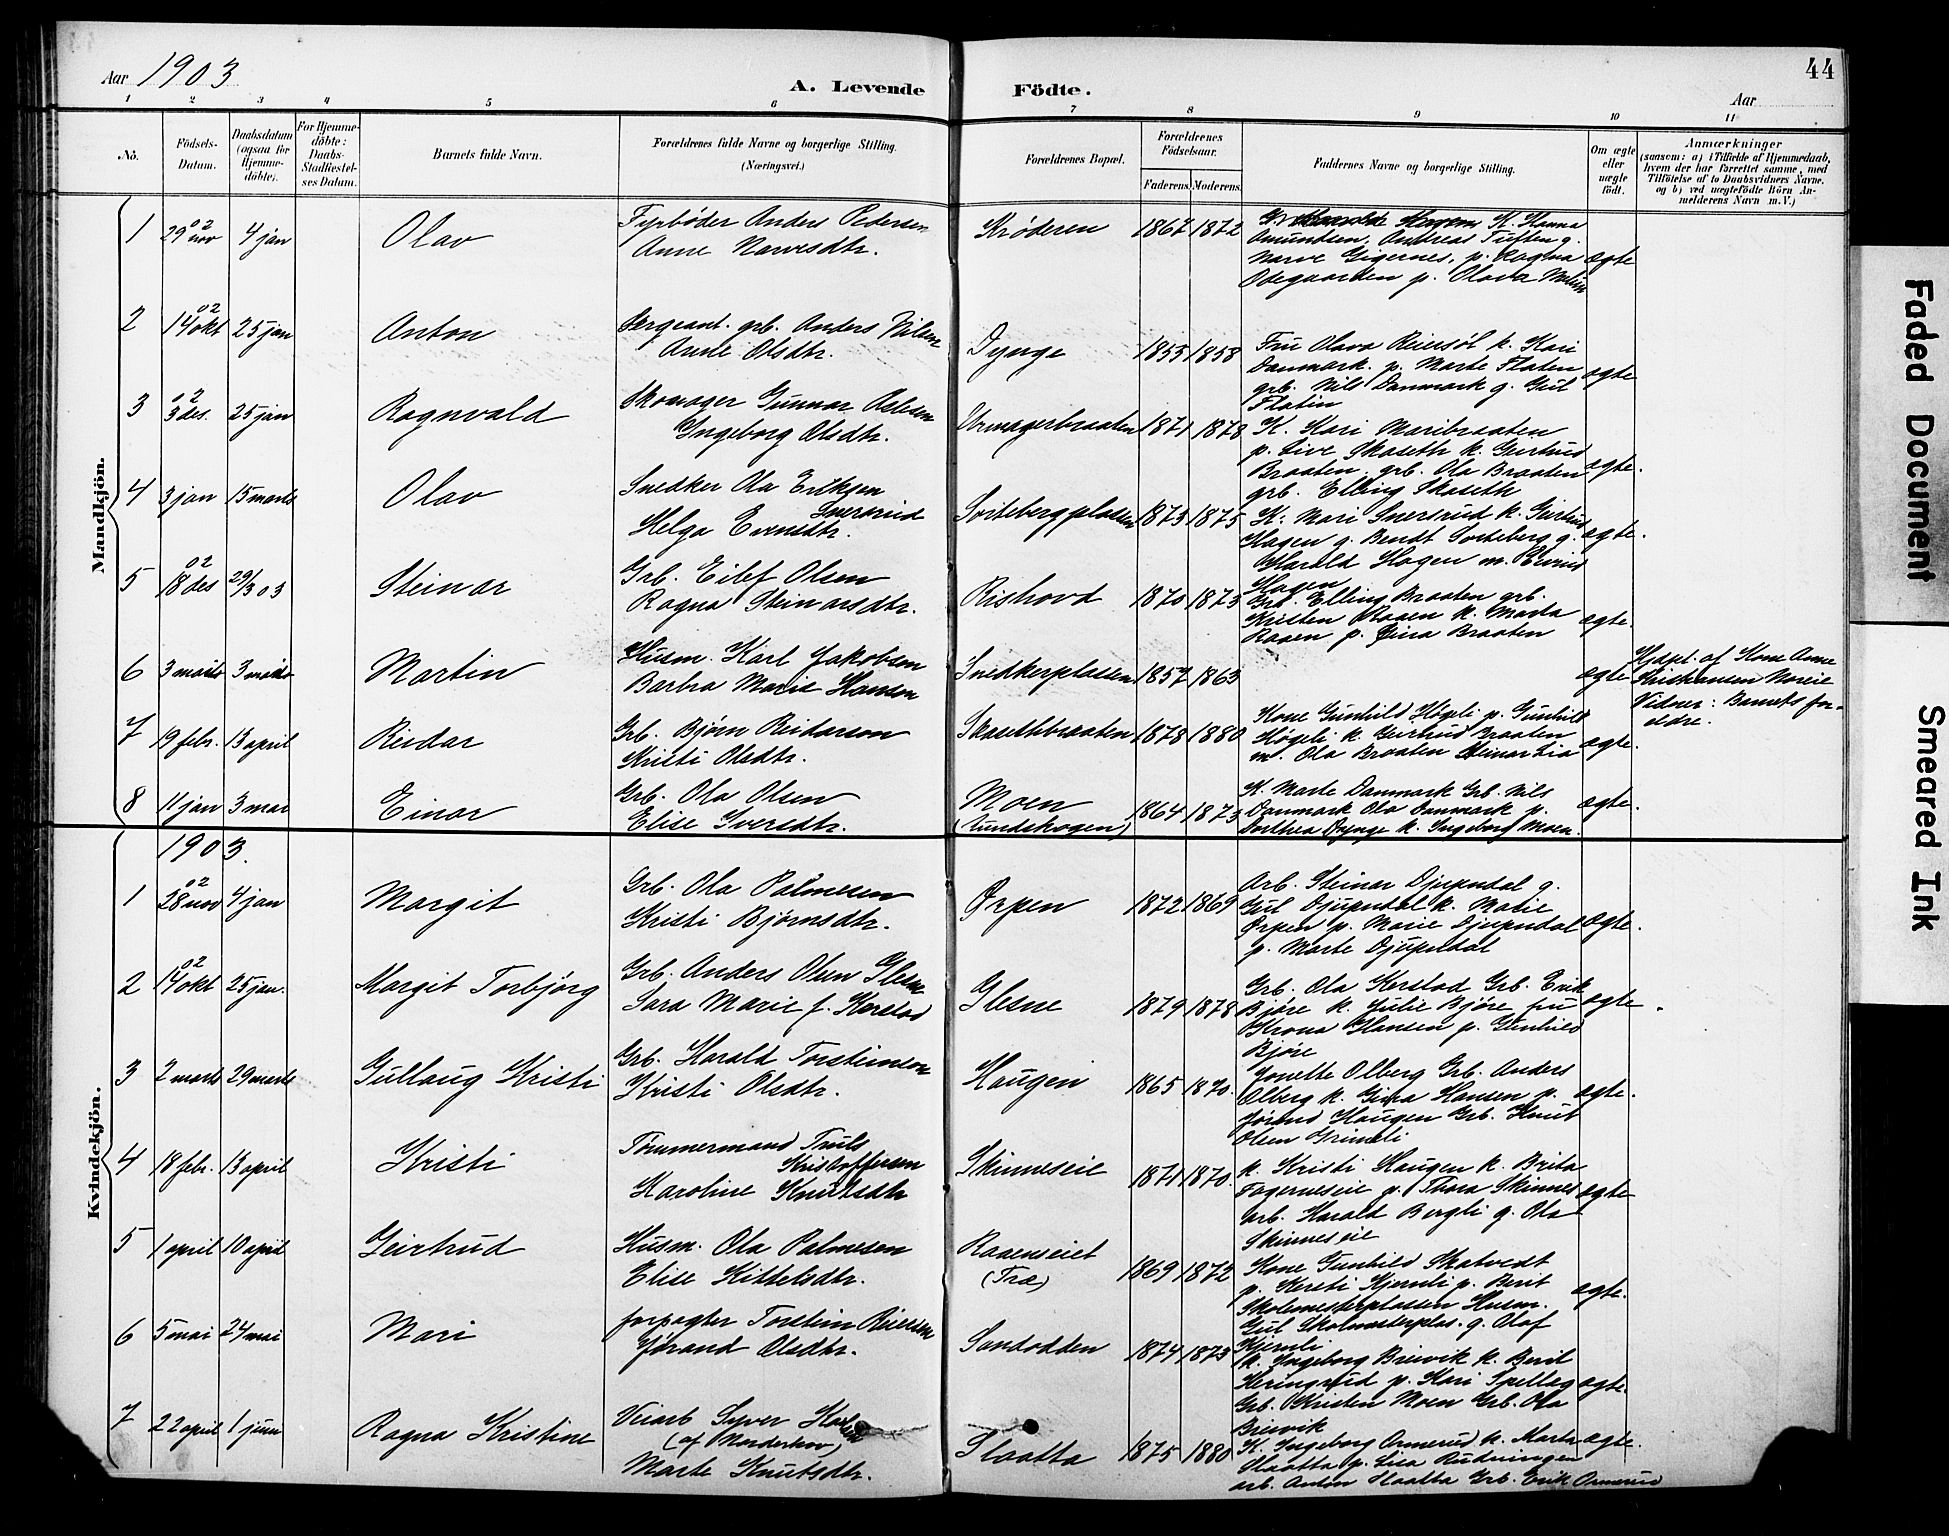 Aar 1903
A. Levende Födte.
44
Aar
1 2 3 4 5 6 7 8 9 10 11
No.
Födsels-Datum.
Daabsdatum (ogsaa for Hjemme-döbte).
For Hjemme-döbte: Daabs-Stadfæstel-ses Datum.
Barnets fulde Navn.
Forældrenes fulde Navne og borgerlige Stilling.
(Næringsvei.)
Forældrenes Bopæl.
Forældrenes Födselsaar.
Faderens. Moderens.
Faddernes Navne og borgerlige Stilling.
Om ægte eller uægte födt.
Anmærkninger
(saasom: a) i Tilfælde af Hjemmedaab, hvem der har forrettet samme, med Tilföielse af to Daabsvidners Navne, og b) ved uægtefödte Börn Anmelderens Navn m. V.)
Mandkjön.
1 29 nov 02 4 jan Olav Fyrbøder Anders Pedersen
Anne Narvesdtr. Krøderen 1867 1872 K. Hanna
Amundsen, Andreas Tuften g.
Narve Gigernes, p. Ragna
Ødegaarden p. Olava Molin ægte
2 14 okt 02 25 jan Anton Sergeant. grb. Anders Nilsen
Anne Olsdtr. Dynge 1855 1858 Fru Olava Reiersøl k. Kari
Danmark. p. Marte Flaten
grb. Nils Danmark g. Gul
Flatin ægte
3 3 des. 02 25 jan Ragnvald Skomager Gunnar Aslesen
Ingeborg Olsdtr. Urmagerbraaten 1871 1878 K. Kari Maribraaten
p. Live Skaseth k. Gertrud
Braaten. grb. Ola Braaten
grb. Elling Skaseth ægte.
4 3 jan 15 marts Olav Snedker Ola Eriksen
Snersrud
Helga Evensdtr. Soitebergplassen 1873 1875 K. Mari Snersrud k. Gertrud
Hagen g. Bendt Soiteberg g.
Harald Hagen m.
Hagen ægte.
5 18 des 02 29/3 03 Steinar Grb. Eilef Olsen
Ragna Steinarsdtr. Rishovd 1870 1873 Grb. Elling Braaten grb.
Kristen Raaen k. Marta
Raaen p. Gina Braaten ægte.
6 3 marts 3 marts Martin Husm. Karl Jakobsen
Barbra Marie Hansen Snedkerplassen 1857 1863 ægte Hjdpt. af Kone Anne
Kristiansen Moreie
Vidner: Barnets for-
eldre.
7 19 febr. 13 april Reidar Grb. Bjørn Reidarson
Kristi Olsdtr. Skasethbraaten 1878 1880 Kone Gunhild Høgeli p. Gunhild
Høgeli k. Gertrud Braaten
m. Ola Braaten Steinar Lia ægte.
8 11 jan 3 mar Einar Grb. Ola Olsen
Elise Iversdtr. Moen
(Lundskogen) 1864 1873 K. Marte Danmark Grb. Nils
Danmark Ola Danmark p.
Dorthea Dynge k. Ingeborg Moen. ægte.
Kvindekjön.
1903.
1 28 nov 02 4 jan Margit Grb. Ola Palmesen
Kristi Bjørnsdtr. Ørpen 1872 1869 Arb. Steinar Djupndal g.
Gul Djupndal k. Marie
Ørpen p. Marie Djupndal
p. Marte Djupndal ægte.
2 14 okt 02 25 jan. Margit Torbjørg Grb. Anders Olsen Glesne
Sara Marie f. Kerstad Glesne 1879 1878 Grb. Ola Kerstad Grb. Erik
Bjøre k. Julie Bjøre fru
Krona Hansen p. Gunhild
Bjøre ægte
3 2 marts 29 marts Gullaug Kristi Grb. Harald Torsteinson
Kristi Olsdtr. Haugen 1865 1870. Jonette Olberg Grb. Anders
Olberg k. Gina Hansen p.
Jørand Haugen Grb. Knut
Olsen Grimeli ægte.
4 18 febr. 13 april Kristi Tømmermand Truls
Kristoffersen
Karoline Knutsdtr Skinneseie 1871 1870. k. Kristi Haugen k. Brita
Fagerneseie p. Thora Skinnes
arb. Harald Bergli g. Ola
Skinneseie ægte
5 1 april 10 april Geirtrud Husm. Ola Palmesen
Elise Kittelsdtr. Raaenseiet
(Træ) 1869 1872 Kone Gunhild Skatvedt
p. Kersti Kjemli p. Berit
Skolemesterplassen Husm.
Gul Skolmesterplas. g. Olaf
Kjemli ægte.
6 5 mai 24 mai Mari forpagter Torstein Reiersen
Jørand Olsdtr. Sandodden 1874 1873 K. Ingeborg Breivik k. Berit
Heringrud p. Kari Spellag
Grb. Kristen Moen Grb. Ola
Breivik ægte.
7 22 april 1 juni Ragna Kristine Veiarb Syver Karlsen
(af Norderhov)
Marte Knutsdtr. Slaatta 1875 1880 K. Ingeborg Ormerud k. Marta
Slaatta p. Lisa Rudningen
arb. Anton Slaatta Grb. Erik Ormerud ægte.
Faded Document
Smeared Ink